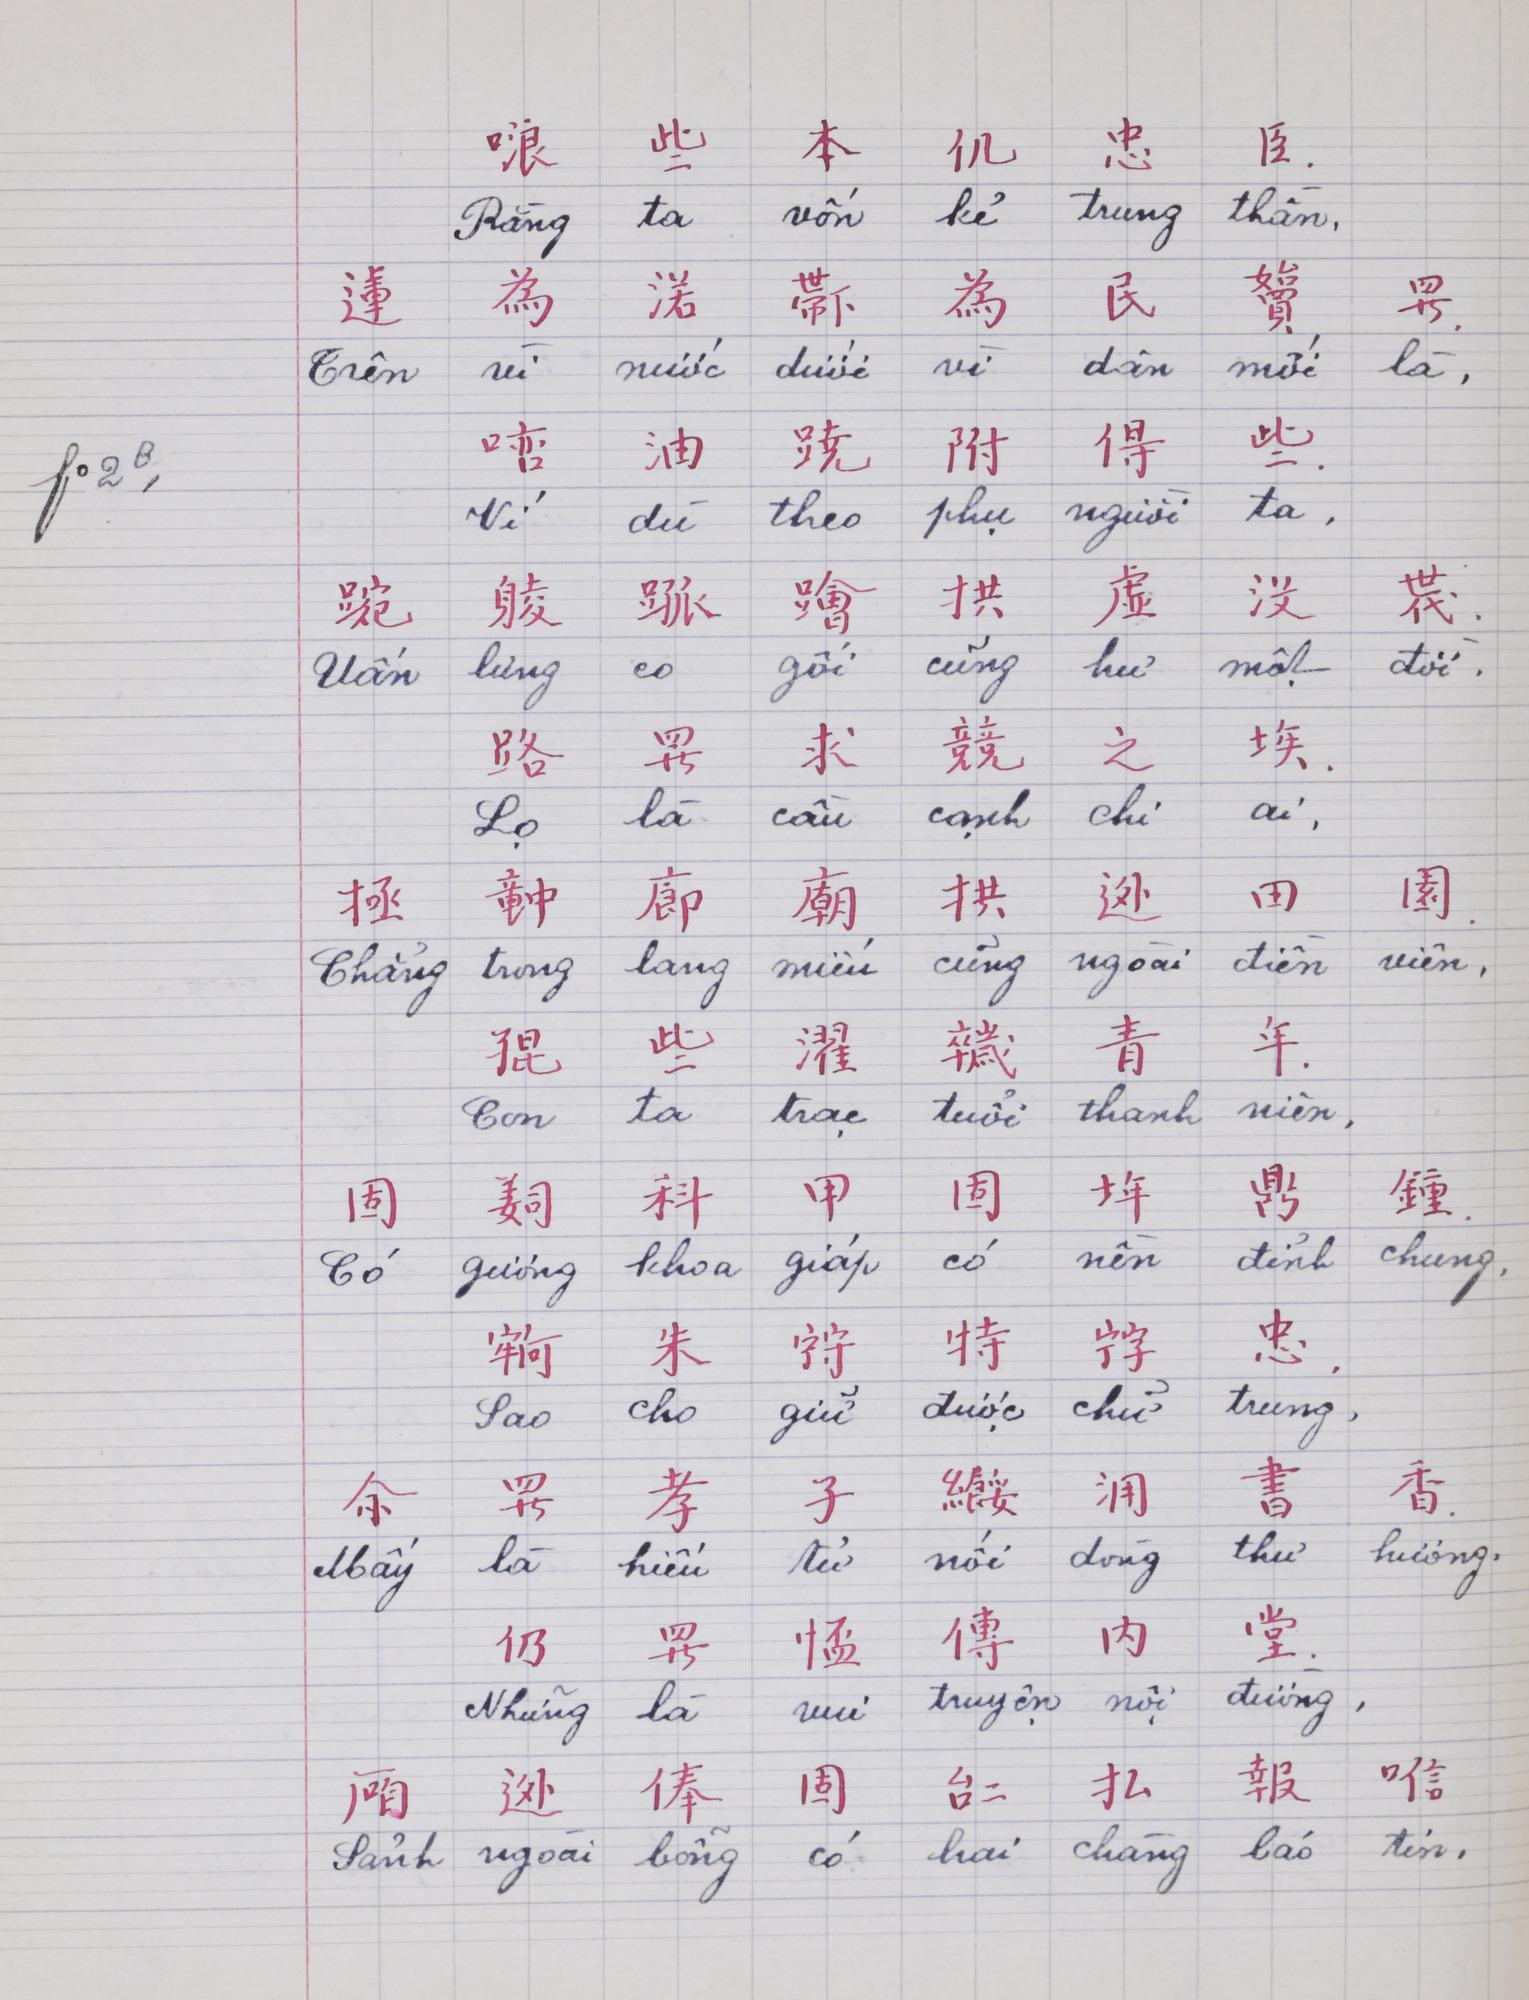 哴些本仉忠臣.
Rằng ta vốn kẻ trung thần,
𨕭為渃𠁑為民買𱺵.
Trên vì nước dưới vì dân mới là,
f° 2 B,
㗂油蹺附得些.
Ví dù theo phụ người ta,
踠𨉞蹠𨆝拱虛没𠁀.
Uấn lưng co gối cũng hư một đời.
路𱺵求競之埃.
Lọ là cầu cạnh chi ai,
拯𥪝廊廟拱𨖅田園.
Chẳng trong lang miếu cũng ngoài điền viên,
猑些濯𢆫青年.
Con ta trạc tuổi thanh niên,
固𦎛科甲固𡋂鼎鍾.
Có gương khoa giáp có nền đỉnh chung,
𡫡朱𡨹特𡨸忠.
Sao cho giữ được chữ trung,
余𱺵孝子綏㳥書香.
Mấy là hiếu tử nối dòng thư hương.
仍𱺵𢝙傳内堂.
Những là vui truyện nội đường,
𢋠𨖅俸固𠄩払報𠶀
Sảnh ngoài bỗng có hai chàng báo tin.